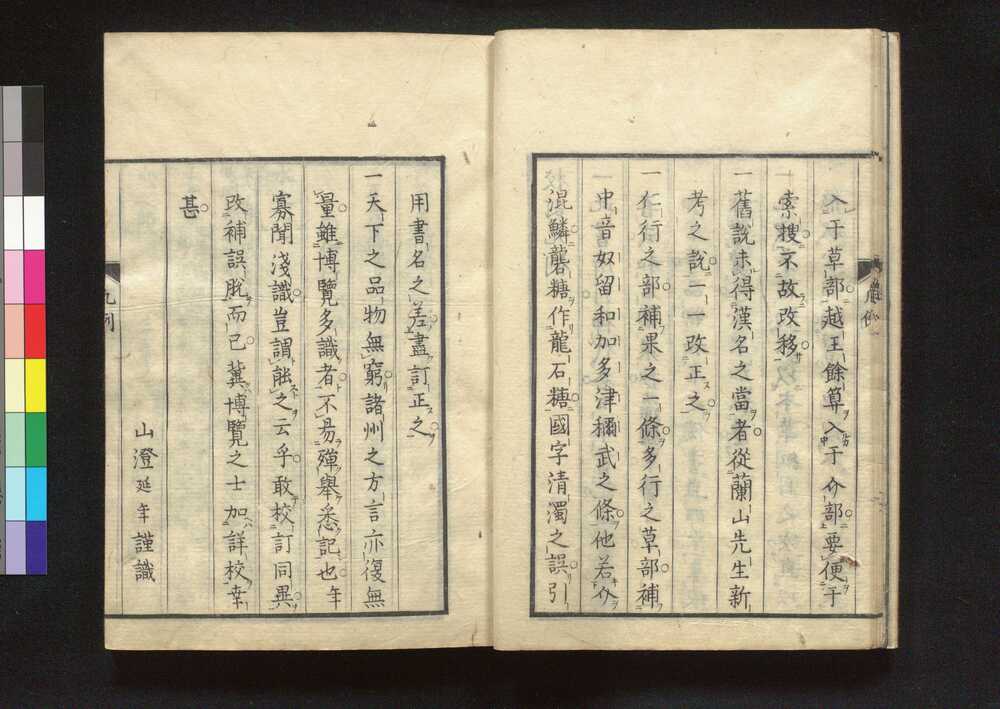 入于草部越王餘算入于介部要便于
索搜不故改移
一舊說未得漢名之當者從蘭山先生新
考之說一一改正之
一仁行之部補果之一條多行之草部補
中音奴留和加多津稱武之條他若介
混鱗龍礱糖作龍石糖國字清濁之誤引
用書名之差盡訂正之
一天下之品物無窮諸州之方言亦復無
量雖博覽多識者不易殫舉悉記也年
寡聞淺識豈謂能之云乎敢校訂同異
改補誤脫而已冀博覽之士加詳校幸
甚
山澄延年謹識
凡例